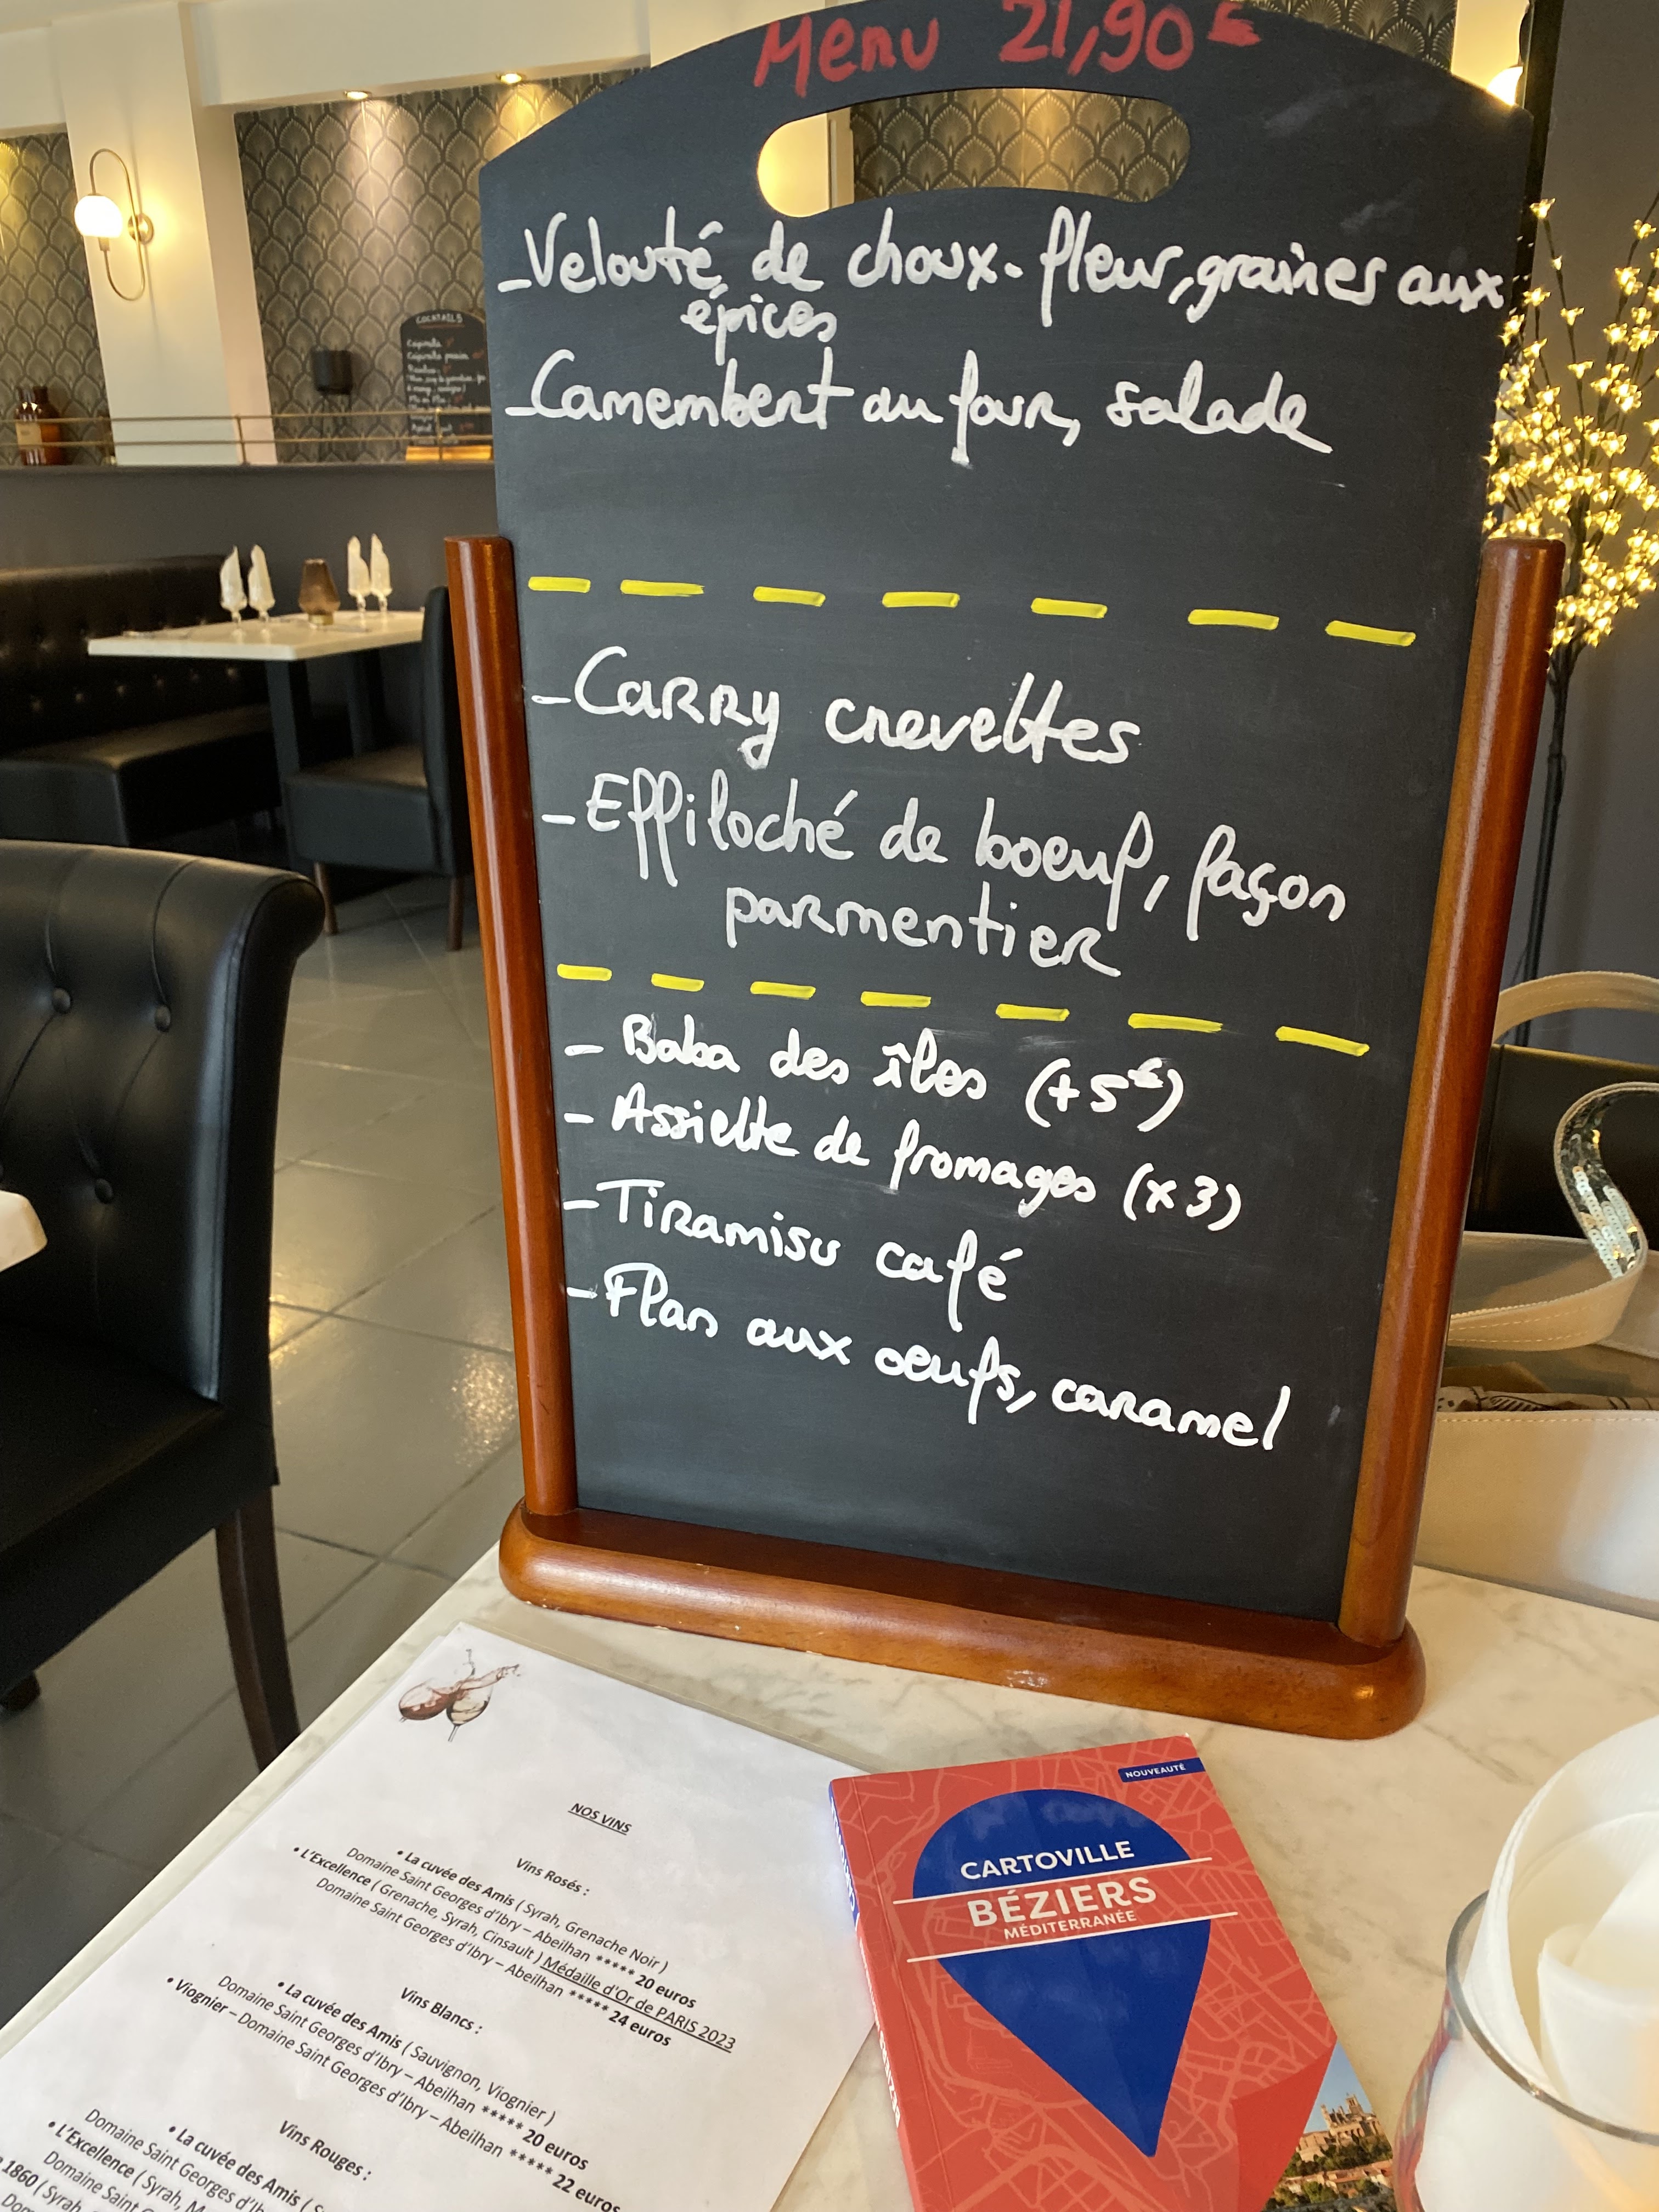 Menu 21,90€
-Velouté de choux-fleur, graines aux
épices
-Camembert au four, salade
-Carry crevettes
-Effiloché de boeuf, façon
parmentier
- Baba des îles (+5€)
- Assiette de fromages (x3)
-Tiramisu café
-Flan aux oeufs, caramel
COCKTAILS
NOS VINS
Vins Rosés :
• La cuvée des Amis ( Syrah, Grenache Noir )
Domaine Saint Georges d'Ibry – Abeilhan ***** 20 euros
• L'Excellence ( Grenache, Syrah, Cinsault ) Médaille d'Or de PARIS 2023
Domaine Saint Georges d'Ibry – Abeilhan ***** 24 euros
Vins Blancs :
• La cuvée des Amis ( Sauvignon, Viognier )
Domaine Saint Georges d'Ibry – Abeilhan ***** 20 euros
• Viognier – Domaine Saint Georges d'Ibry – Abeilhan ***** 22 euros
Vins Rouges :
• La cuvée des Amis (
Domaine Saint Georges d'
• L'Excellence ( Syrah,
Domaine Saint
1860 ( Syrah,
NOUVEAUTÉ
CARTOVILLE
BÉZIERS
MÉDITERRANÉE